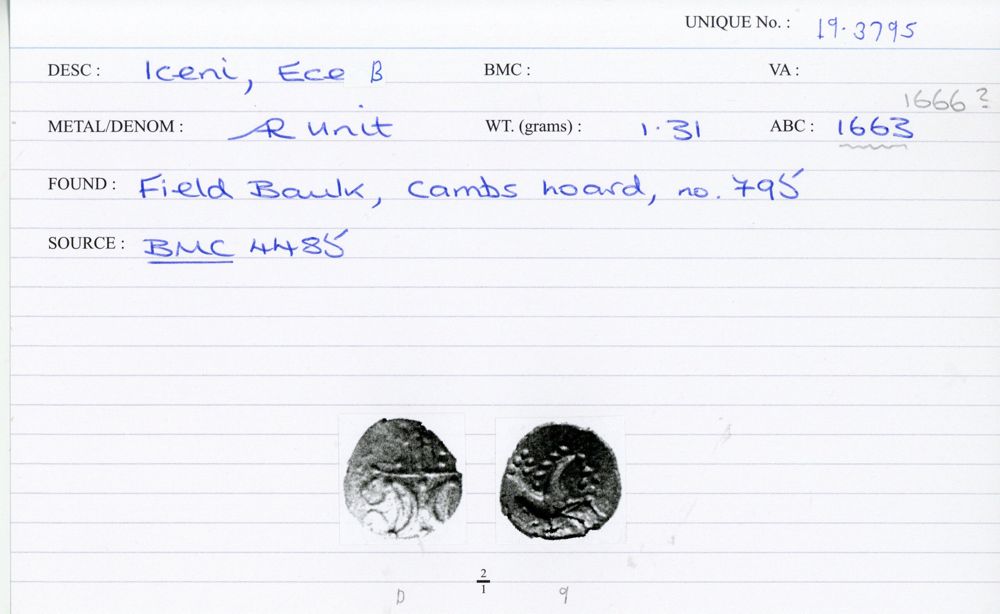 UNIQUE No. : 19.3795
DESC : Iceni, Ece B BMC : VA :
1666 ?
METAL/DENOM : AR unit WT. (grams) : 1.31 ABC : 1663
FOUND : Field Baulk, Cambs hoard, no. 795
SOURCE : BMC 4485
2
1
D 9